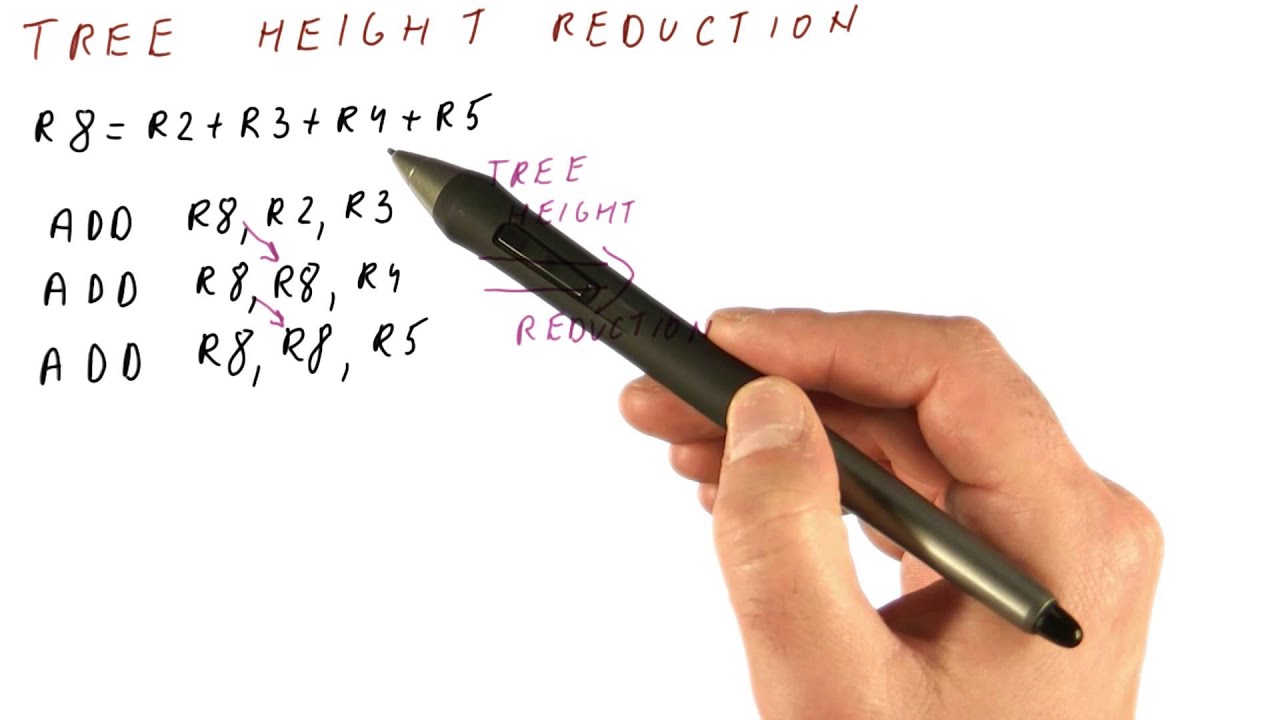 TREE HEIGHT REDUCTION
R8 = R2 + R3 + R4 + R5
ADD R8, R2, R3
ADD R8, R8, R4
ADD R8, R8, R5
TREE
HEIGHT
REDUCTION